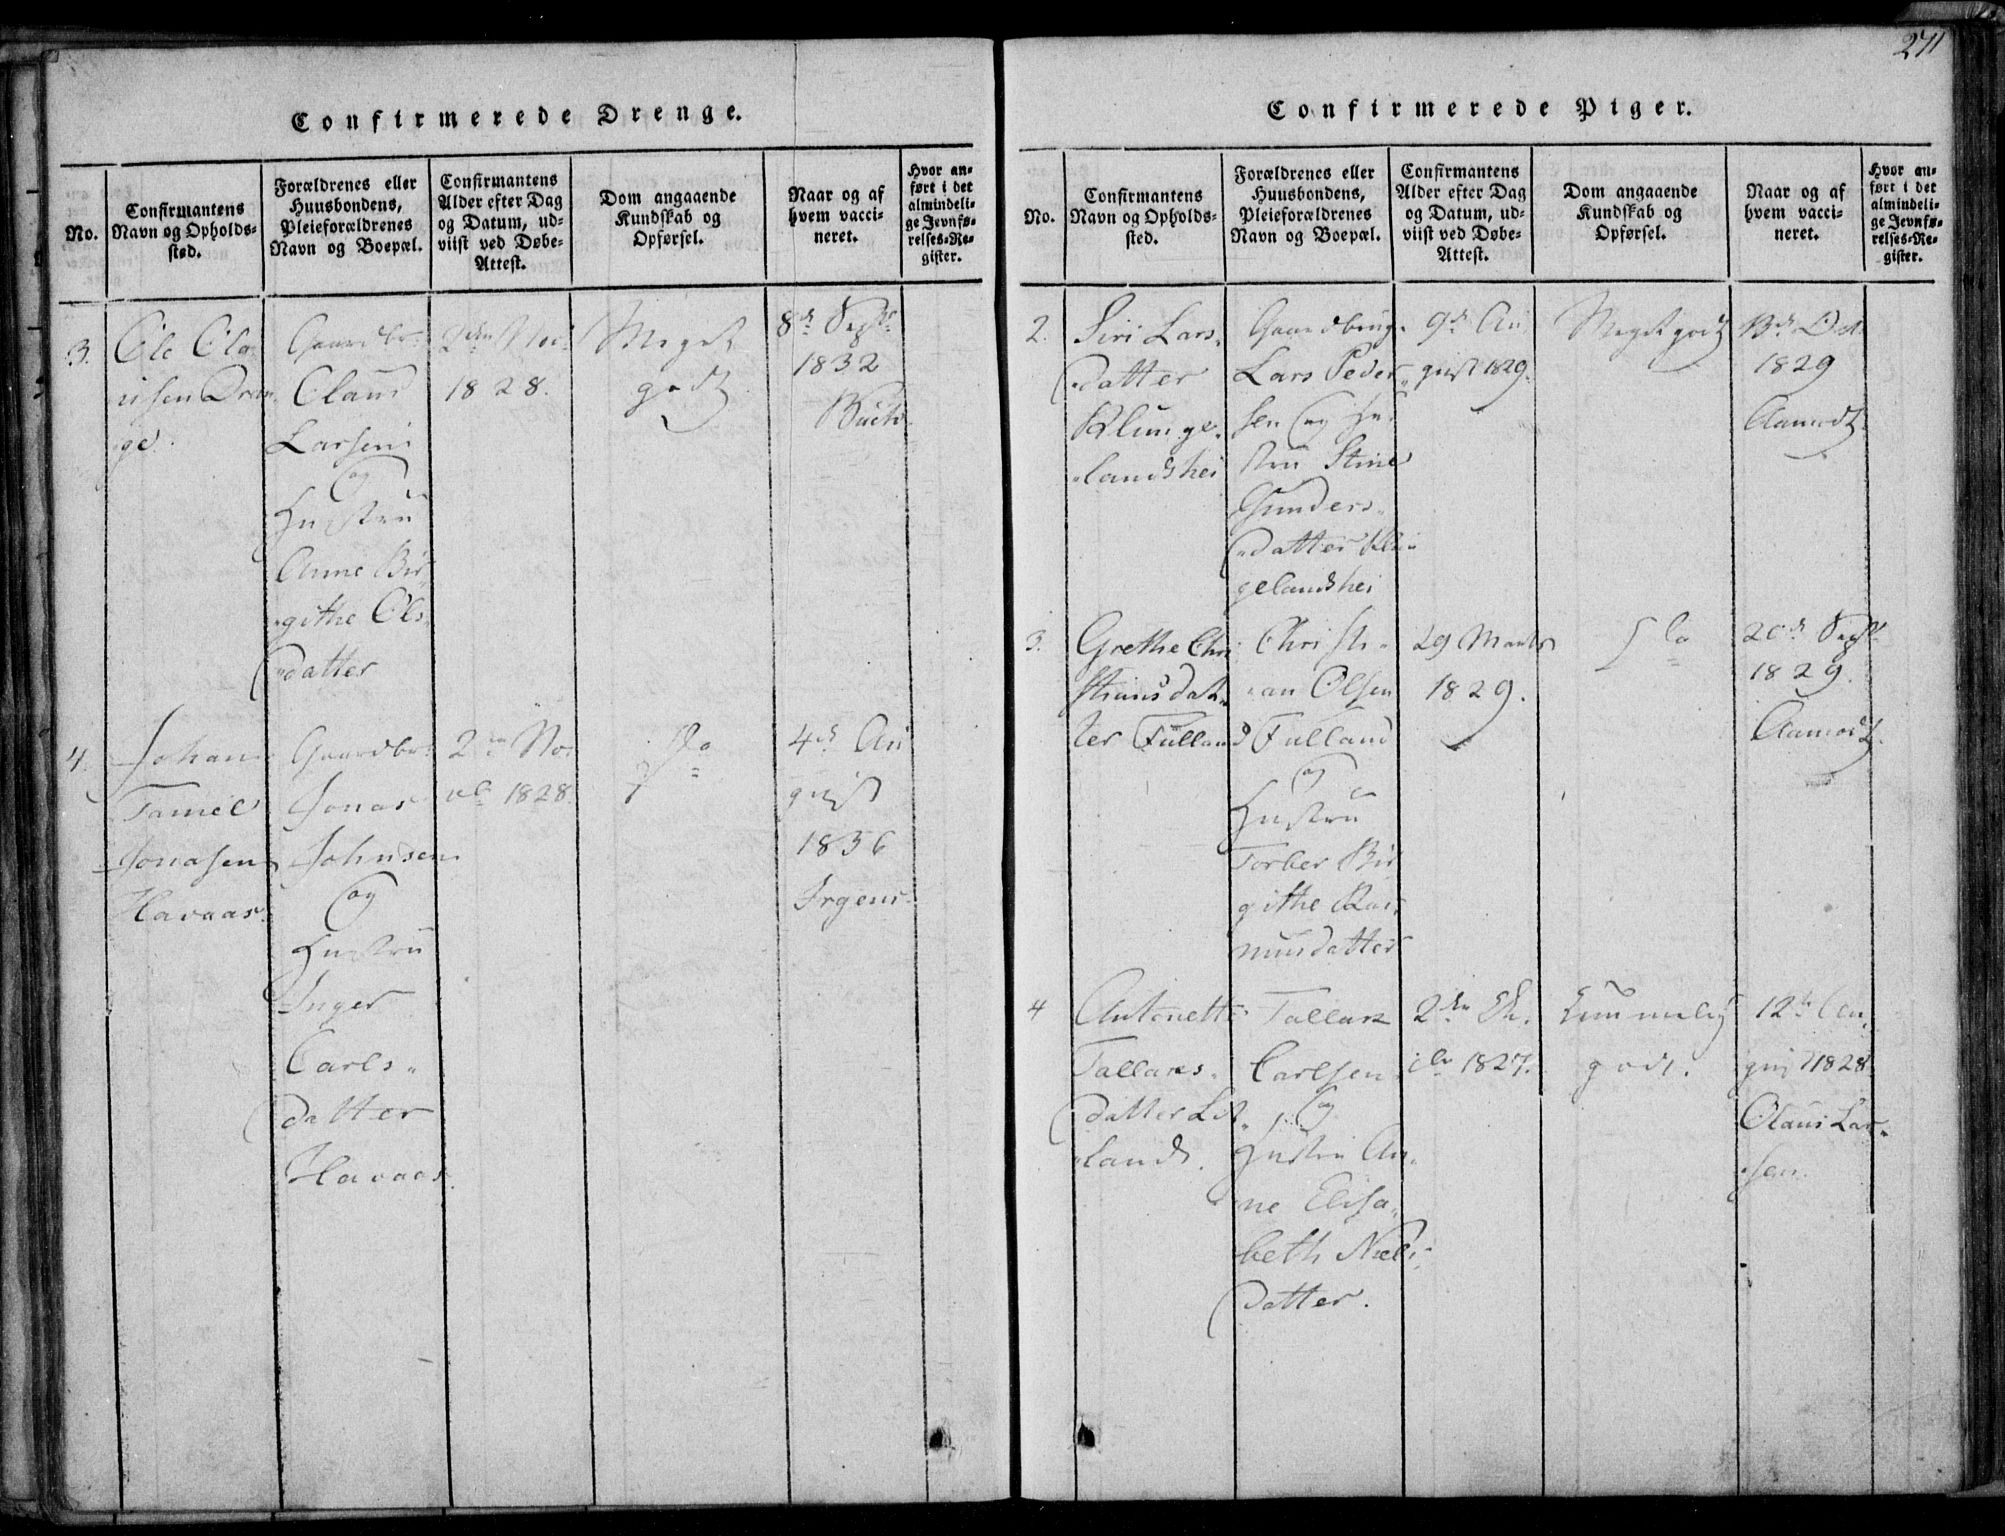 271
Confirmerede Drenge.
No.
Confirmantens
Navn og Opholds-
sted.
Forældrenes eller
Huusbondens,
Pleieforældrenes
Navn og Boepæl.
Confirmantens
Alder efter Dag
og Datum, ud-
viist ved Døbe-
Attest.
Dom angaaende
Kundskab og
Opførsel.
Naar og af
hvem vacci-
neret.
Hvor an-
ført i det
almindeli-
ge Jevnfø-
relses-Re-
gister.
3.
Ole Ola-
usen Dran
ge.
Gaardbr.
Olaus
Larsen
og
Hustru
Anne Bir-
githe Ols-
datter
2den Nov.
1828.
Meget
godt
8de Septbr
1832
Buch
4.
Johan
Tomel
Jonasen
Havaas.
Gaardbr.
Jonas
Johnsen
og
Hustru
Inger
Carls-
datter
Havaas.
2den No-
vbr 1828.
Do
4de Au
gust
1836
Irgens.
Confirmerede Piger.
No.
Confirmantens
Navn og Opholds-
sted.
Forældrenes eller
Huusbondens,
Pleieforældrenes
Navn og Boepæl.
Confirmantens
Alder efter Dag
og Datum, ud-
viist ved Døbe-
Attest.
Dom angaaende
Kundskab og
Opførsel.
Naar og af
hvem vacci-
neret.
Hvor an-
ført i det
almindeli-
ge Jevnfø-
relses-Re-
gister.
2.
Siri Lars-
datter
Klunge-
landshei
Gaardbrug.
Lars Peder-
sen og Hu-
stru Stine
Gunders-
datter Klun-
gelandshei
9de Au
gust 1829.
Meget godt
13de Oct.
1829
Aamodt
3.
Grethe Chri
stiansdat-
ter Fuland
Christi-
an Olsen
Fuland
og
Hustru
Torber Bir
githe Ras-
musdatter
29 Marts
1829.
Do
20de Septbr
1829.
Aamodt.
4
Antonette
Tallaks-
datter Lit-
land.
Tallak
Carlsen
og
Hustru An-
ne Elisa-
beth Niels-
datter.
2den
1827.
Temmelig
godt.
12te Au-
gust 1828
Olaus Lar-
sen.